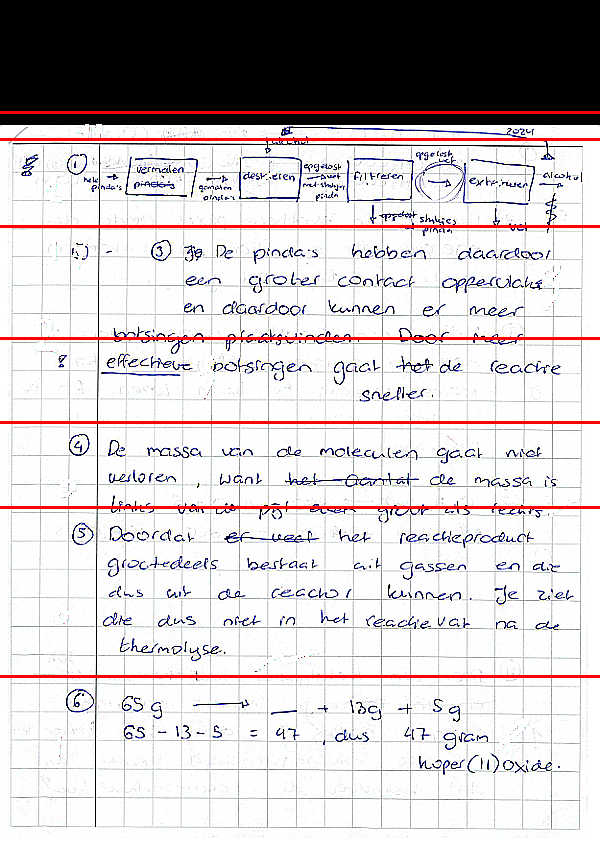 2024
① hele pinda's → vermalen pinda's → gemalen pinda's → destileren → opgelost vet met stukjes pinda → filtreren → opgelost vet → extraheren → alcohol
stukjes pinda
vet
③ De pinda's hebben daardoor
een groter contact oppervlakte
en daardoor kunnen er meer
botsingen plaatsvinden. Door meer
effectieve botsingen gaat het de reactie
sneller.
④ De massa van de moleculen gaat niet
verloren, want het aantal de massa is
links van de pijl even groot als rechts.
⑤ Doordat er veel het reactieproduct
grootedeels bestaat uit gassen en die
dus uit de reactor kunnen. Je ziet
die dus niet in het reactievat na de
thermolyse.
⑥ 65 g → __ + 13g + 5g
65 - 13 - 5 = 47, dus 47 gram
koper(II)oxide.